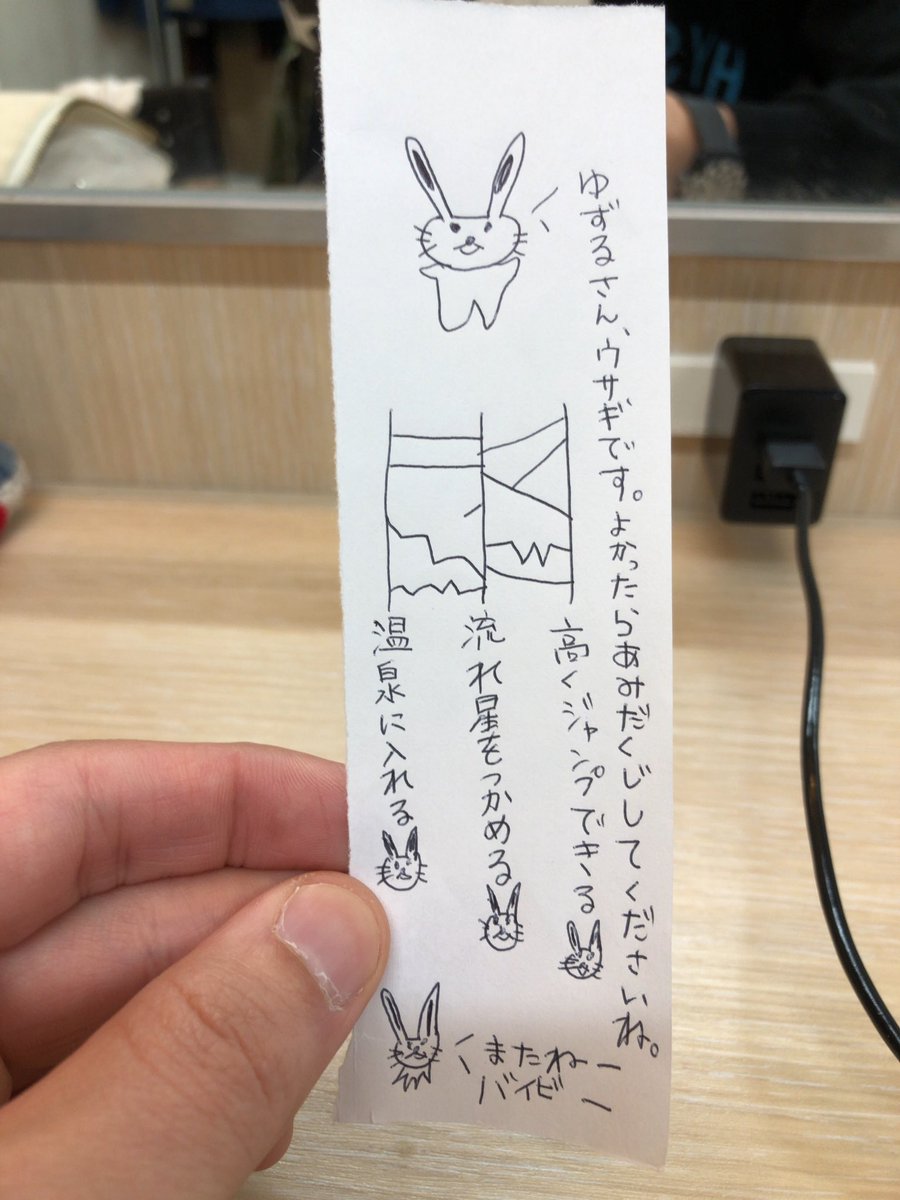 ゆずるさん、ウサギです。よかったらあみだくじしてくださいね。
高くジャンプできる
流れ星をつかめる
温泉に入れる
またねー
バイビー